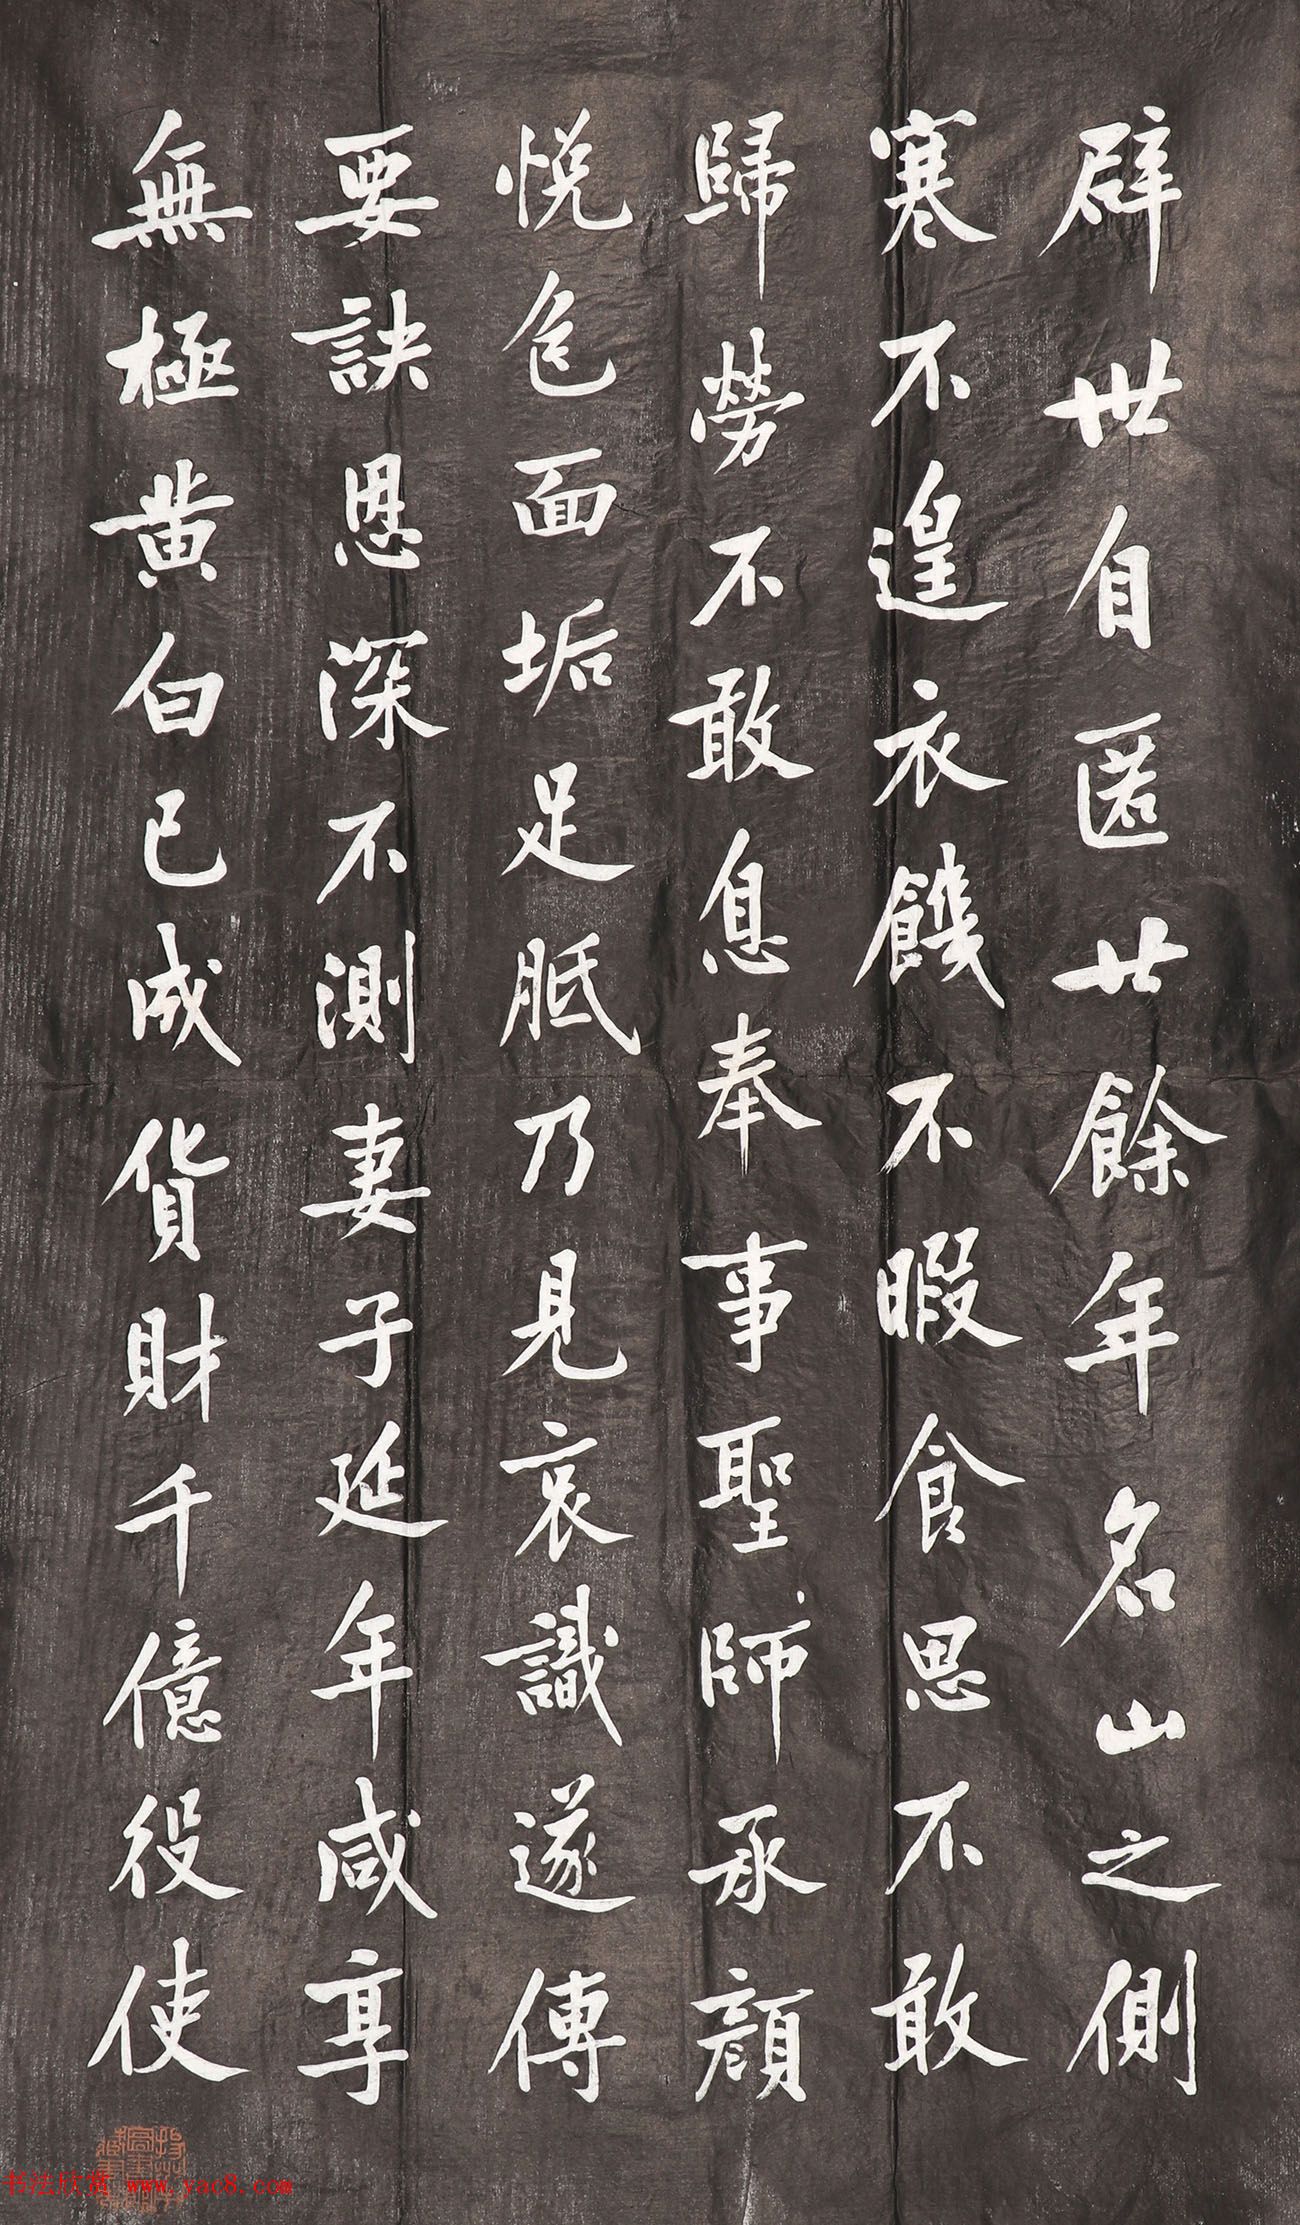 辟世自匿廿餘年名山之側
寒不遑衣饑不暇食思不敢
歸勞不敢息奉事聖師承顏
悦色面垢足胝乃見哀識遂傳
要訣恩深不測妻子延年咸享
無極黄白已成貨財千億役使
书法欣赏 www.yac8.com